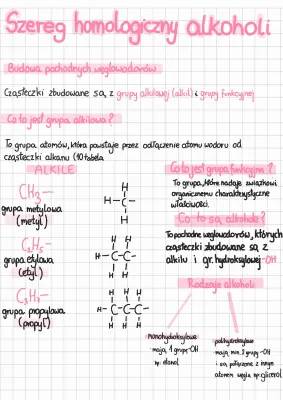 Szereg homologiczny alkoholi
Budowa pochodnych węglowodorów
Cząsteczki zbudowane są z grupy alkilowej (alkil) i grupy funkcyjnej
Co to jest grupa alkilowa?
To grupa atomów, która powstaje przez odłączenie atomu wodoru od
cząsteczki alkanu (10 tabela
ALKILE
CH3—
grupa metylowa
(metyl)
H
H-C-
H
C2H5—
grupa etylowa
(etyl)
H H
H-C-C-
H H
C3H7—
grupa propylowa
(propyl)
H H H
H-C-C-C-
H H H
Co to jest grupa funkcyjna?
To grupa, które nadaje związkowi
organicznemu charakterystyczne
właściwości.
Co to są alkohole?
To pochodne węglowodorów, których
cząsteczki zbudowane są z
alkilu i gr. hydroksylowej -OH
Rodzaje alkoholi
monohydroksylowe
-mają 1 grupę -OH
np. etanol
polihydroksylowe
-mają min. 2 grupy -OH
i są połączone z innym
atomem węgla np. glicerol